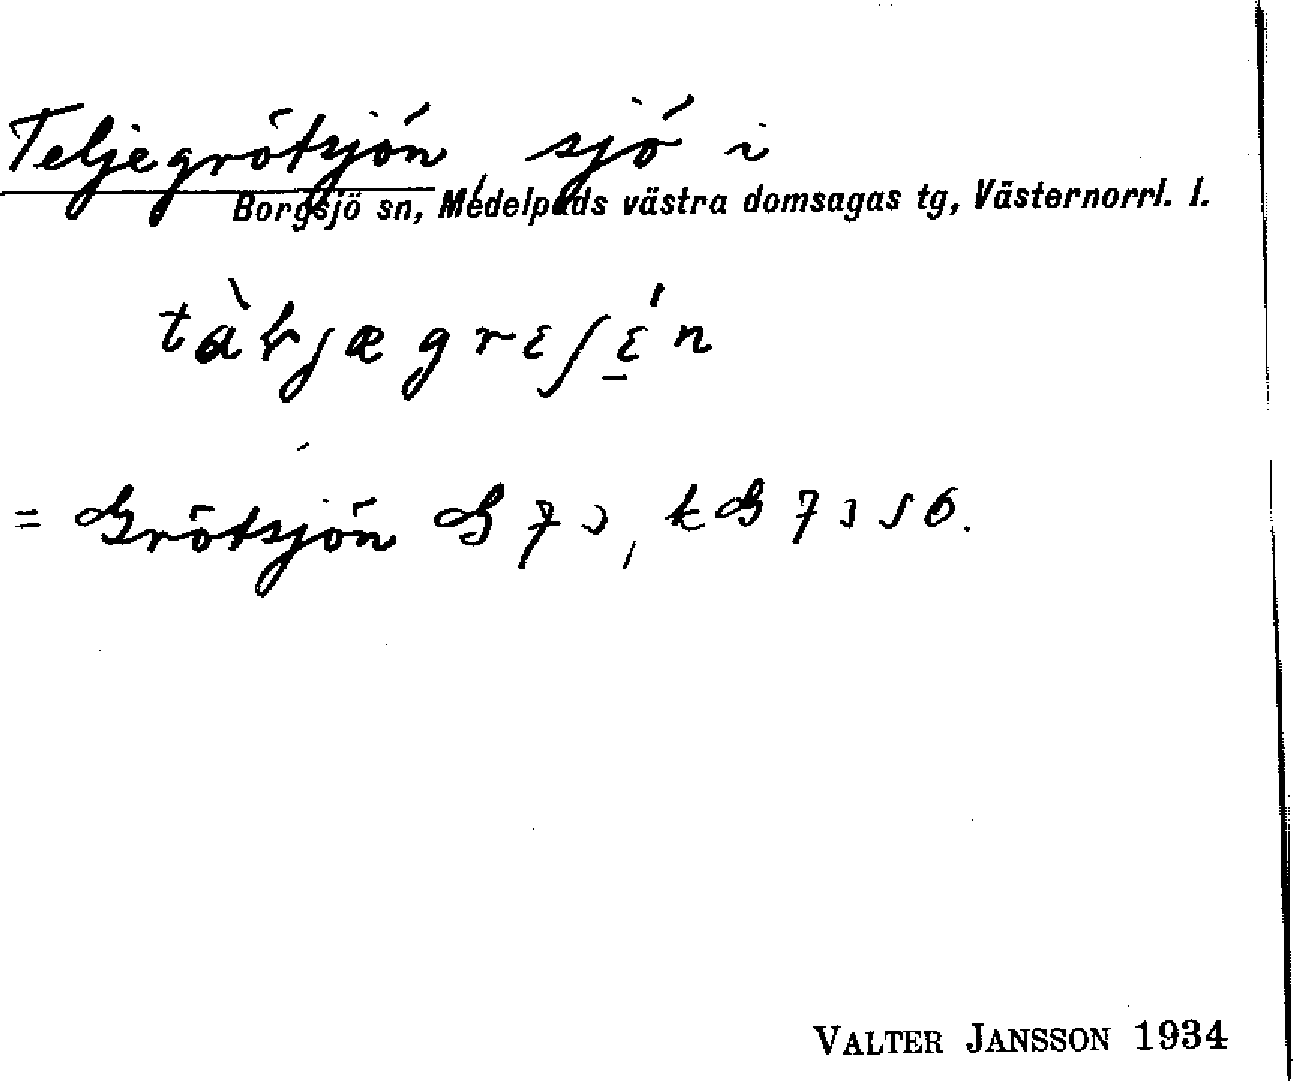 Teljegrötsjön sjö i
Borgsjö sn, Medelpads västra domsagas tg, Västernorrl. l.
= Grötsjön
VALTER JANSSON 1934